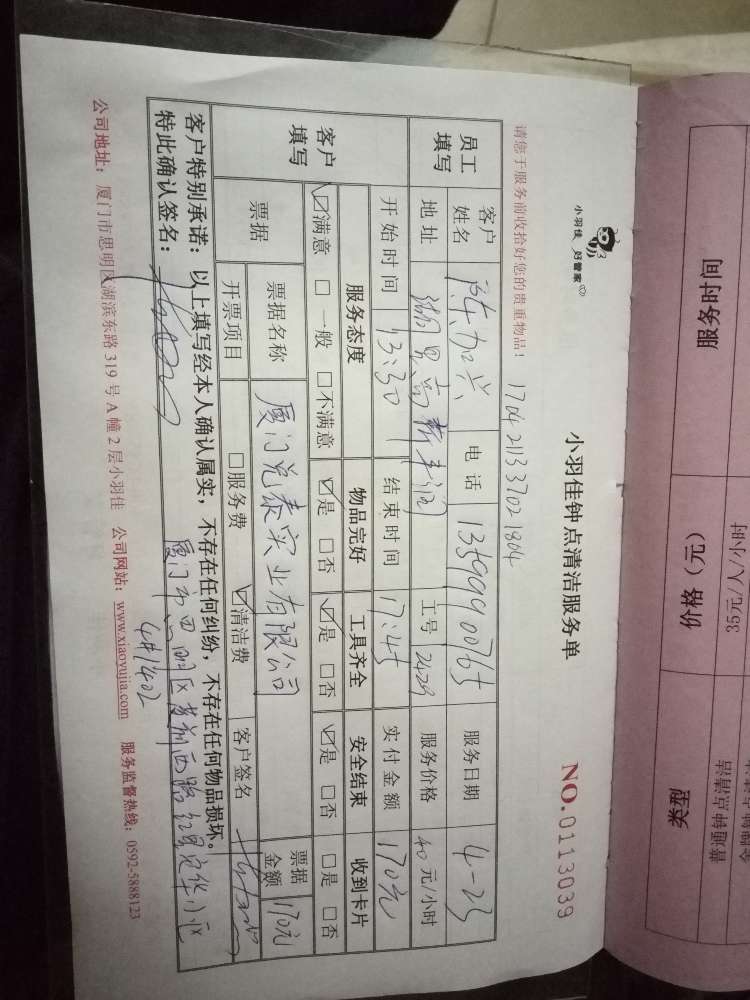 小羽佳 好管家
小羽佳钟点清洁服务单
NO.0113039
请您于服务前收拾好您的贵重物品！ 1704211337021804
员工填写 客户姓名 陈加兴 电话 13599900765 服务日期 4-23
地址 湖里高新车间 工号 2429 服务价格 40元/小时
开始时间 13:30 结束时间 17:45 实付金额 170元
客户填写 服务态度 物品完好 工具齐全 安全结束 收到卡片
☑满意 □一般 □不满意 ☑是 □否 ☑是 □否 ☑是 □否 □是 □否
票据 票据名称 厦门兑泰实业有限公司 票据金额 170元
开票项目 □服务费 ☑清洁费 客户签名
客户特别承诺：以上填写经本人确认属实，不存在任何纠纷，不存在任何物品损坏。
特此确认签名： 厦门市思明区 前西路 定华小区
4#1402
公司地址：厦门市思明区湖滨东路319号A幢2层小羽佳 公司网站：www.xiaoyujia.com 服务监督热线：0592-5888123
服务时间 价格（元） 类型
35元/人/小时 普通钟点清洁